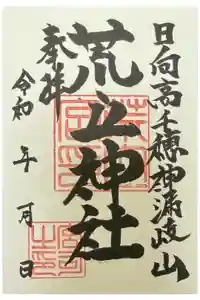 日向高千穂神漏岐山
奉拝
荒立神社
令和 年 月 日